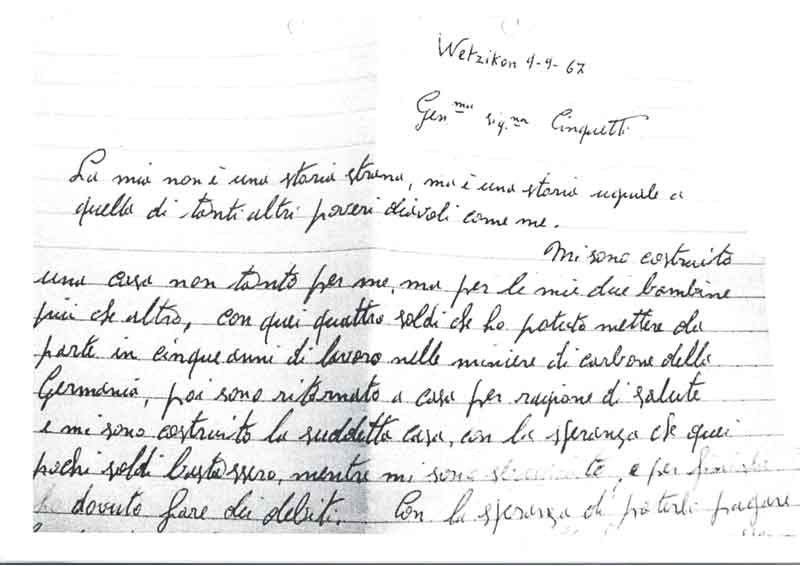 Wetzikon 4-4-67
Gen ma sig.na Cinquetti
La mia non è una storia strana, ma è una storia uguale a
quella di tanti altri poveri diavoli come me.
Mi sono costruito
una casa non tanto per me, ma per le mie due bambine
più che altro, con quei quattro soldi che ho potuto mettere da
parte in cinque anni di lavoro nelle miniere di carbone della
Germania, poi sono ritornato a casa per ragione di salute
e mi sono costruito la suddetta casa, con la speranza che quei
pochi soldi bastassero, mentre mi sono e per
ho dovuto fare dei debiti. Con la speranza di poterli pagare